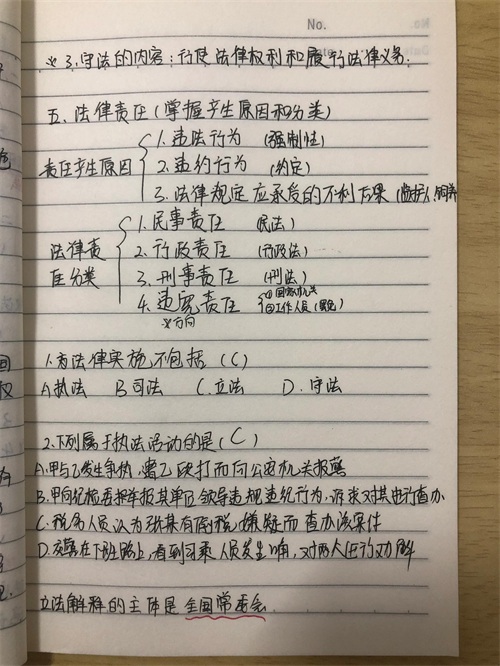 No.
※ 3.守法的内容：行使法律权利和履行法律义务.
五.法律责任(掌握产生原因和分类)
责任产生原因
1.违法行为 (强制性)
2.违约行为 (约定)
3.法律规定应承受的不利后果(监护人,饲养
法律责任分类
1.民事责任 (民法)
2.行政责任 (行政法)
3.刑事责任 (刑法)
4.违宪责任 ①国家机关
②工作人员(罢免)
※方向
1.为法律实施不包括 (C)
A.执法 B司法 C.立法 D.守法
2.下列属于执法活动的是(C)
A.甲与乙发生争执,遭乙殴打而向公安机关报警
B.甲向纪检委举报其单位领导违规违纪行为,请求对其进行查办
C.税务人员认为张某有偷税嫌疑而查办该案件
D.交警在下班路上,看到司乘人员发生口角,对两人进行劝解
立法解释的主体是全国常委会